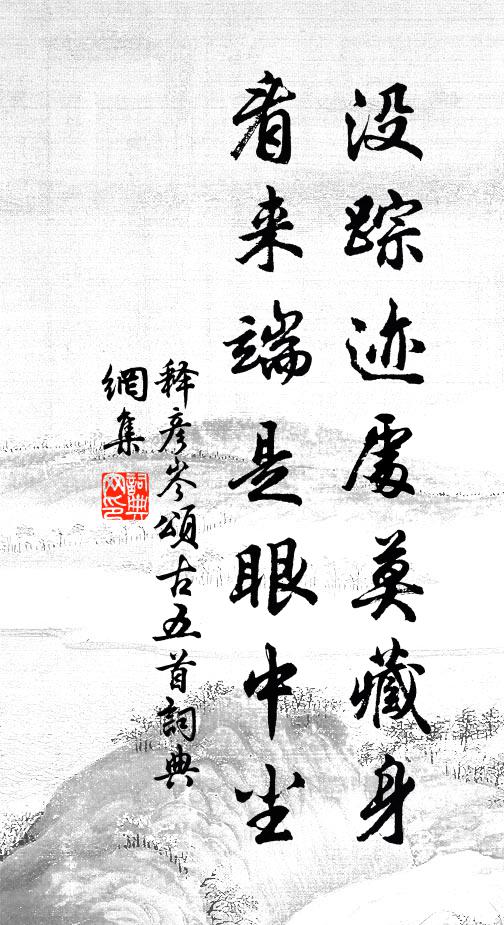 没踪迹處莫藏身
看来端是眼中尘
释彦岑頌古五首詞典
網集
詞典
网印